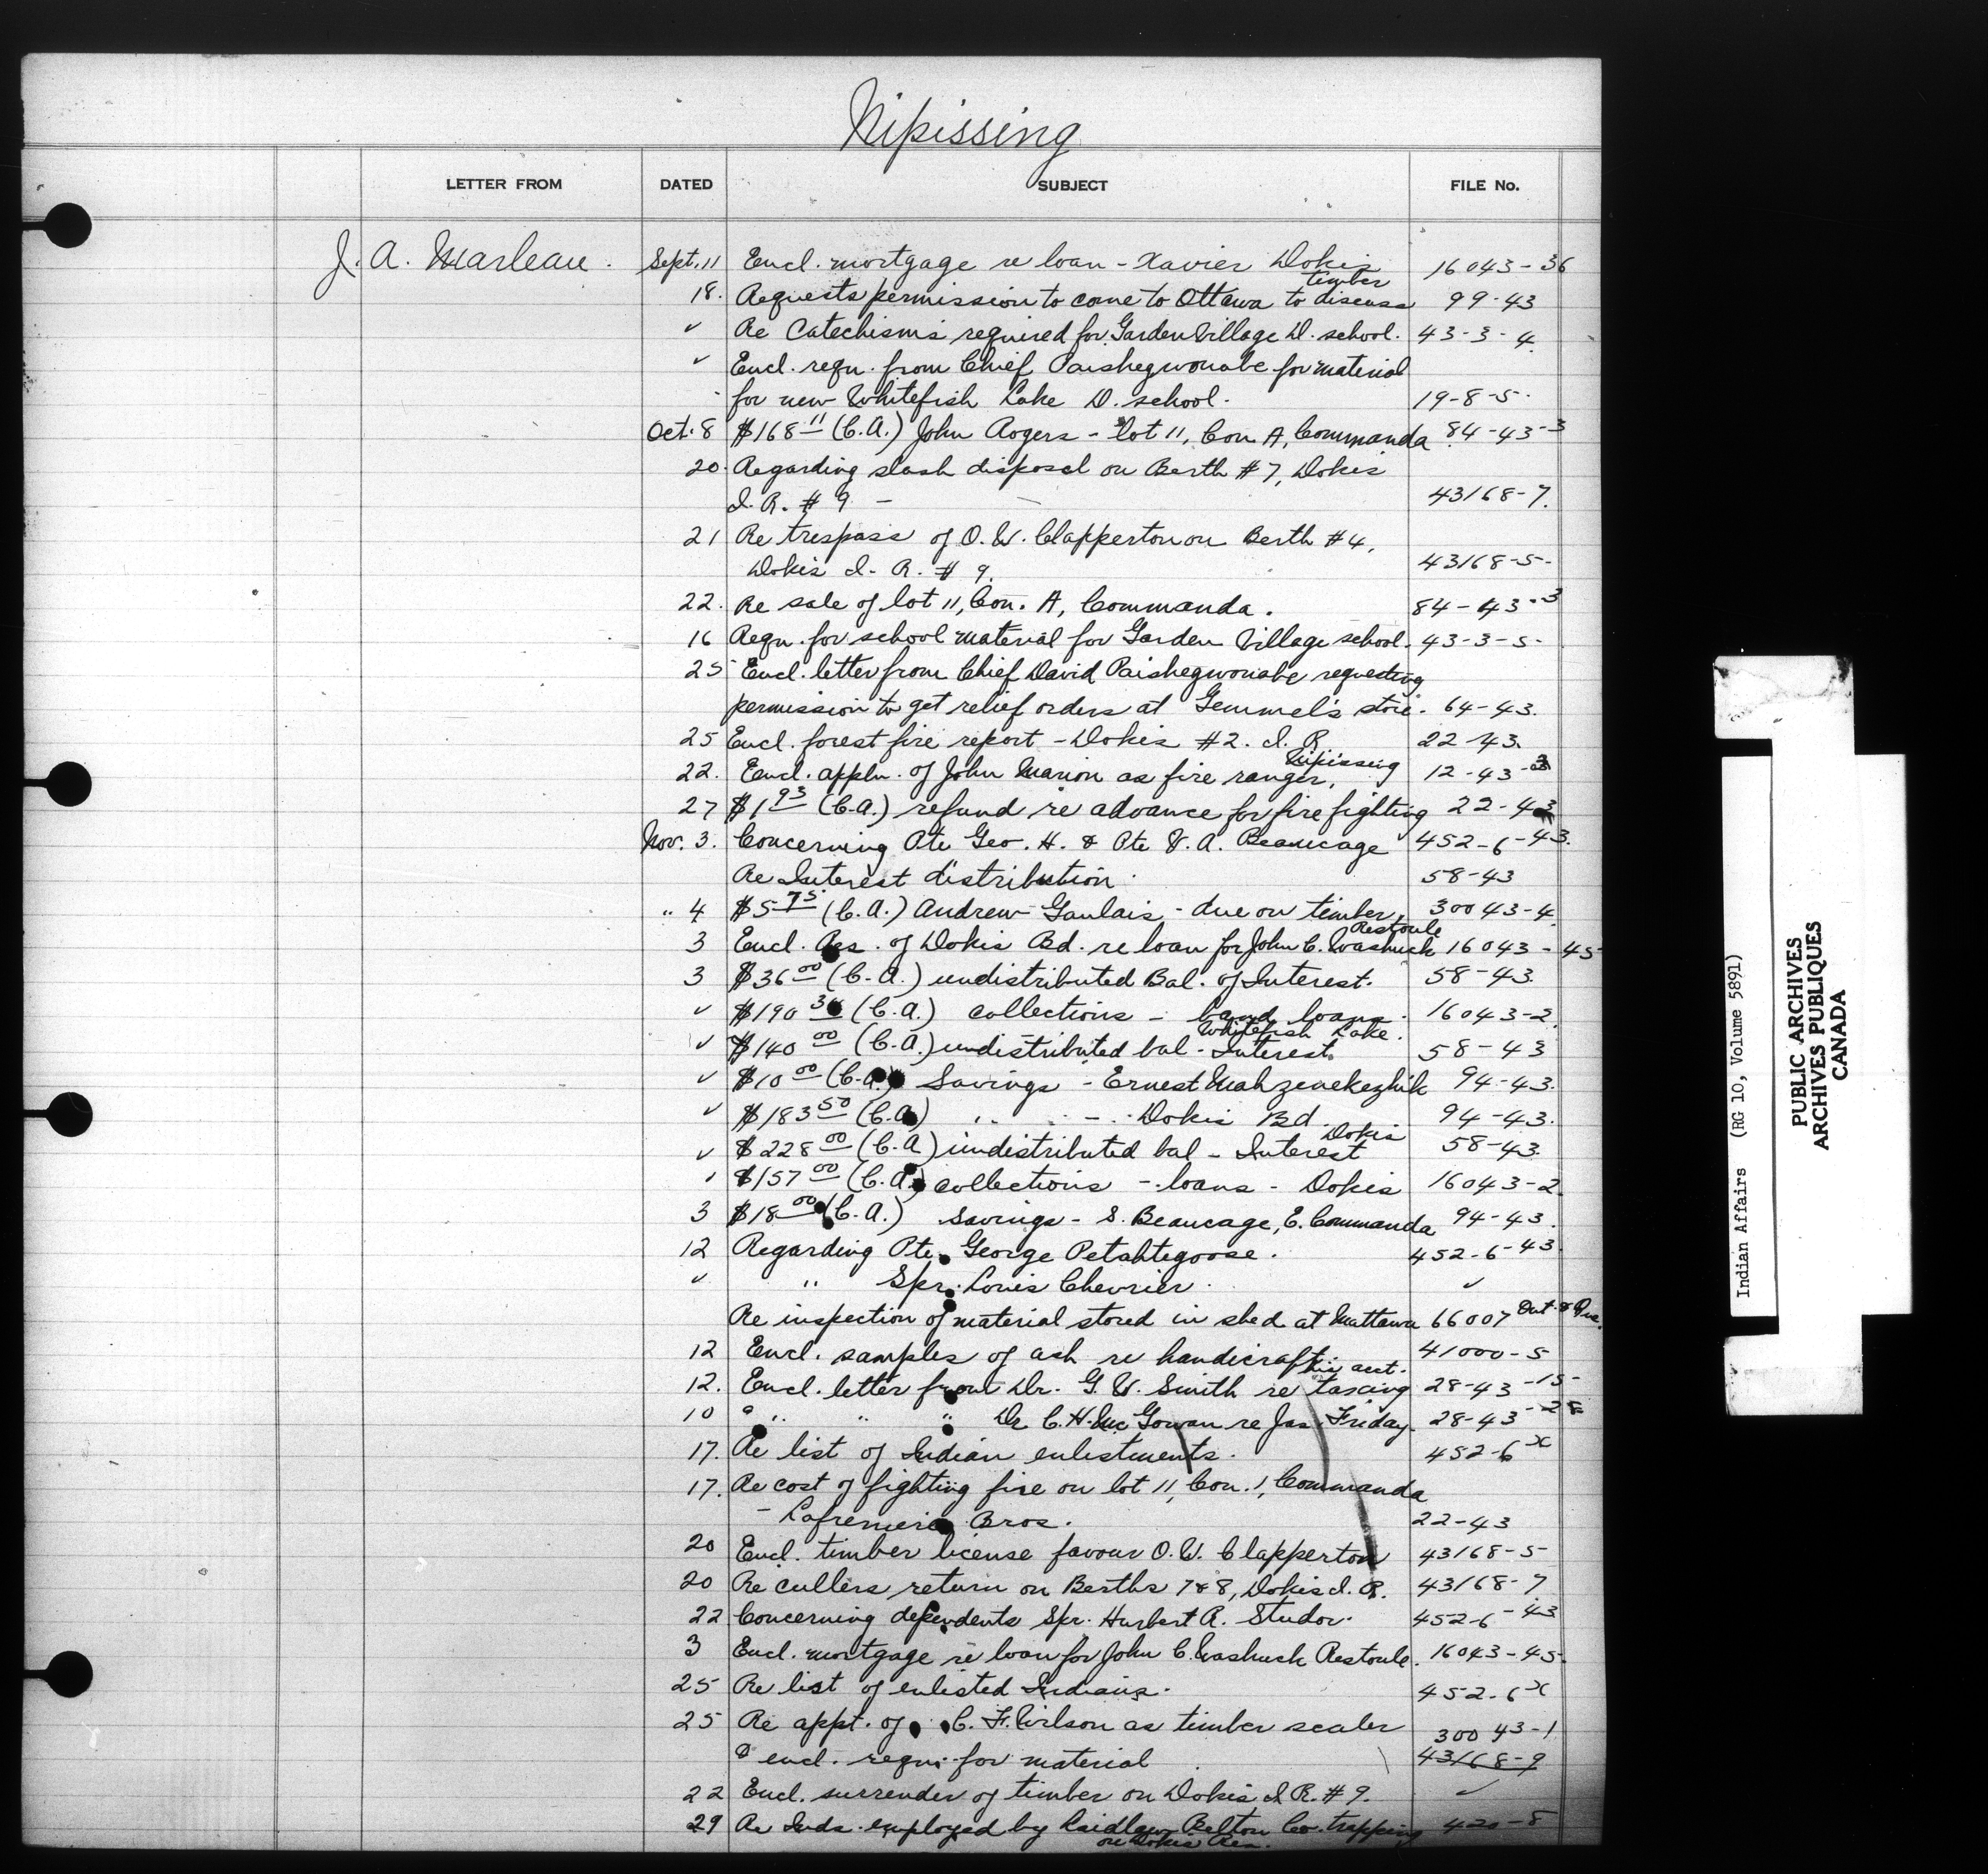 Nipissing
LETTER FROM DATED SUBJECT FILE No.
J. A. Marleau. Sept. 11 Encl. mortgage re loan - Xavier Dokis 16043-36
timber
18. Requests permission to come to Ottawa to discuss 99-43
✓ Re Catechisms required for Garden Village D. school. 43-3-4
✓ Encl. reqn. from Chief Paishegwonabe for material
for new Whitefish Lake D. school. 19-8-5.
Oct. 8 $168 11 (C.A.) John Rogers - Lot 11, Con A, Commanda 84-43-3
20. Regarding slash disposal on Berth #7, Dokis
I. R. # 9 - 43168-7.
21 Re trespass of O. W. Clapperton on Berth #4,
Dokis I. R. # 9. 43168-5-
22. Re sale of lot 11, Con. A, Commanda. 84-43-3
16 Reqn. for school material for Garden Village school. 43-3-5-
25 Encl. letter from Chief David Paishegwonabe requesting
permission to get relief orders at Gemmel's store. 64-43.
25 Encl. forest fire report - Dokis #2. I. R 22-43.
Nipissing
22. Encl. appln. of John Marion as fire ranger, 12-43-3
27 $1 93 (C.A.) refund re advance for fire fighting 22-43
Nov. 3. Concerning Pte Geo. H. & Pte V. A. Beaucage 452-6-43.
Re Interest distribution. 58-43
" 4 $5 75 (C.A.) Andrew Goulais - due on timber, 30043-4
Restoule
3 Encl. Res. of Dokis Bd. re loan for John C. Washusk 16043-45
3 $36 00 (C.A.) undistributed Bal. of Interest. 58-43.
✓ $190 (C.A.) collections - band loans. 16043-2
Whitefish Lake.
✓ $140 00 (C.A.) undistributed bal - Interest. 58-43
✓ $10 00 (C.A.) Savings - Ernest Mahzenekezhik 94-43.
✓ $183 50 (C.A) " - Dokis Bd. 94-43.
Dokis
✓ $228 00 (C.A) undistributed bal - Interest 58-43.
✓ $157 00 (C.A.) collections - loans - Dokis 16043-2.
3 $18 00 (C.A.) Savings - S. Beaucage, E. Commanda 94-43.
12 Regarding Pte. George Petahtegoose. 452-6-43.
✓ " Spr. Louis Chevrier. ✓
Re inspection of material stored in shed at Mattawa 66007 Ont. & Que.
12 Encl. samples of ash re handicraft. 41000-5
his acct.
12. Encl. letter from Dr. G. W. Smith re taxing 28-43-15-
10 " " " Dr C. H. McGowan re Jas. Friday. 28-43-28
17. Re list of Indian enlistments. 452-6 x
17. Re cost of fighting fire on lot 11, Con. 1, Commanda
- Lafreniere Bros. 22-43
20 Encl. timber license favour O. W. Clapperton 43168-5-
20 Re cullers return on Berths 7&8, Dokis I. R. 43168-7
22 Concerning dependents Spr. Hurbert R. Studor. 452-6-43
3 Encl. mortgage re loan for John C. Washusk Restoule. 16043-45-
25 Re list of enlisted Indians. 452-6 x
25 Re appt. of C. F. Wilson as timber scaler 30043-1
& encl. reqn. for material 43168-9
22 Encl. surrender of timber on Dokis I R. #9. ✓
29 Re Inds. employed by Laidlaw Belton Co. trapping 420-8
on Dokis Res.
Indian Affairs (RG 10, Volume 5891)
PUBLIC ARCHIVES
ARCHIVES PUBLIQUES
CANADA